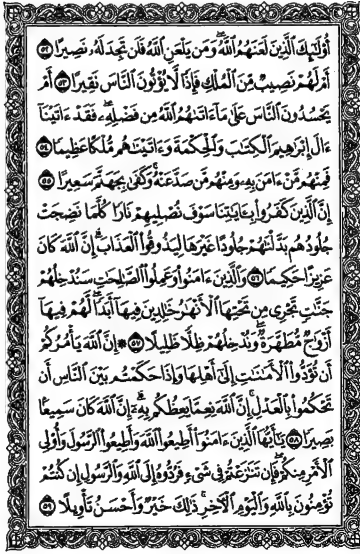 أُوْلَٰٓئِكَ ٱلَّذِينَ لَعَنَهُمُ ٱللَّهُۖ وَمَن يَلْعَنِ ٱللَّهُ فَلَن تَجِدَ لَهُۥ نَصِيرًا ٥٢
أَمْ لَهُمْ نَصِيبٌ مِّنَ ٱلْمُلْكِ فَإِذًا لَّا يُؤْتُونَ ٱلنَّاسَ نَقِيرًا ٥٣ أَمْ
يَحْسُدُونَ ٱلنَّاسَ عَلَىٰ مَآ ءَاتَىٰهُمُ ٱللَّهُ مِن فَضْلِهِۦۖ فَقَدْ ءَاتَيْنَآ
ءَالَ إِبْرَٰهِيمَ ٱلْكِتَٰبَ وَٱلْحِكْمَةَ وَءَاتَيْنَٰهُم مُّلْكًا عَظِيمًا ٥٤
فَمِنْهُم مَّنْ ءَامَنَ بِهِۦ وَمِنْهُم مَّن صَدَّ عَنْهُۚ وَكَفَىٰ بِجَهَنَّمَ سَعِيرًا ٥٥
إِنَّ ٱلَّذِينَ كَفَرُوا۟ بِـَٔايَٰتِنَا سَوْفَ نُصْلِيهِمْ نَارًا كُلَّمَا نَضِجَتْ
جُلُودُهُم بَدَّلْنَٰهُمْ جُلُودًا غَيْرَهَا لِيَذُوقُوا۟ ٱلْعَذَابَۗ إِنَّ ٱللَّهَ كَانَ
عَزِيزًا حَكِيمًا ٥٦ وَٱلَّذِينَ ءَامَنُوا۟ وَعَمِلُوا۟ ٱلصَّٰلِحَٰتِ سَنُدْخِلُهُمْ
جَنَّٰتٍ تَجْرِى مِن تَحْتِهَا ٱلْأَنْهَٰرُ خَٰلِدِينَ فِيهَآ أَبَدًاۖ لَّهُمْ فِيهَآ
أَزْوَٰجٌ مُّطَهَّرَةٌۖ وَنُدْخِلُهُمْ ظِلًّا ظَلِيلًا ٥٧ ۞ إِنَّ ٱللَّهَ يَأْمُرُكُمْ
أَن تُؤَدُّوا۟ ٱلْأَمَٰنَٰتِ إِلَىٰٓ أَهْلِهَا وَإِذَا حَكَمْتُم بَيْنَ ٱلنَّاسِ أَن
تَحْكُمُوا۟ بِٱلْعَدْلِۚ إِنَّ ٱللَّهَ نِعِمَّا يَعِظُكُم بِهِۦٓۗ إِنَّ ٱللَّهَ كَانَ سَمِيعًۢا
بَصِيرًا ٥٨ يَٰٓأَيُّهَا ٱلَّذِينَ ءَامَنُوٓا۟ أَطِيعُوا۟ ٱللَّهَ وَأَطِيعُوا۟ ٱلرَّسُولَ وَأُو۟لِى
ٱلْأَمْرِ مِنكُمْۖ فَإِن تَنَٰزَعْتُمْ فِى شَىْءٍ فَرُدُّوهُ إِلَى ٱللَّهِ وَٱلرَّسُولِ إِن كُنتُمْ
تُؤْمِنُونَ بِٱللَّهِ وَٱلْيَوْمِ ٱلْـَٔاخِرِۚ ذَٰلِكَ خَيْرٌ وَأَحْسَنُ تَأْوِيلًا ٥٩